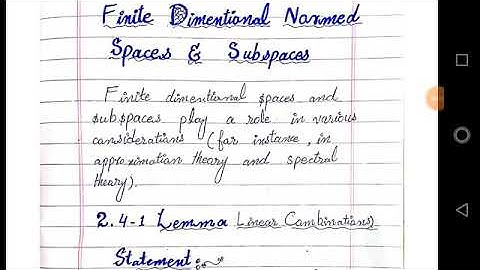 Finite Dimentional Normed
Spaces & Subspaces
Finite dimentional spaces and
subspaces play a role in various
considerations (for instance, in
approximation theory and spectral
theory).
2.4-1 Lemma (Linear Combinations)
Statement: